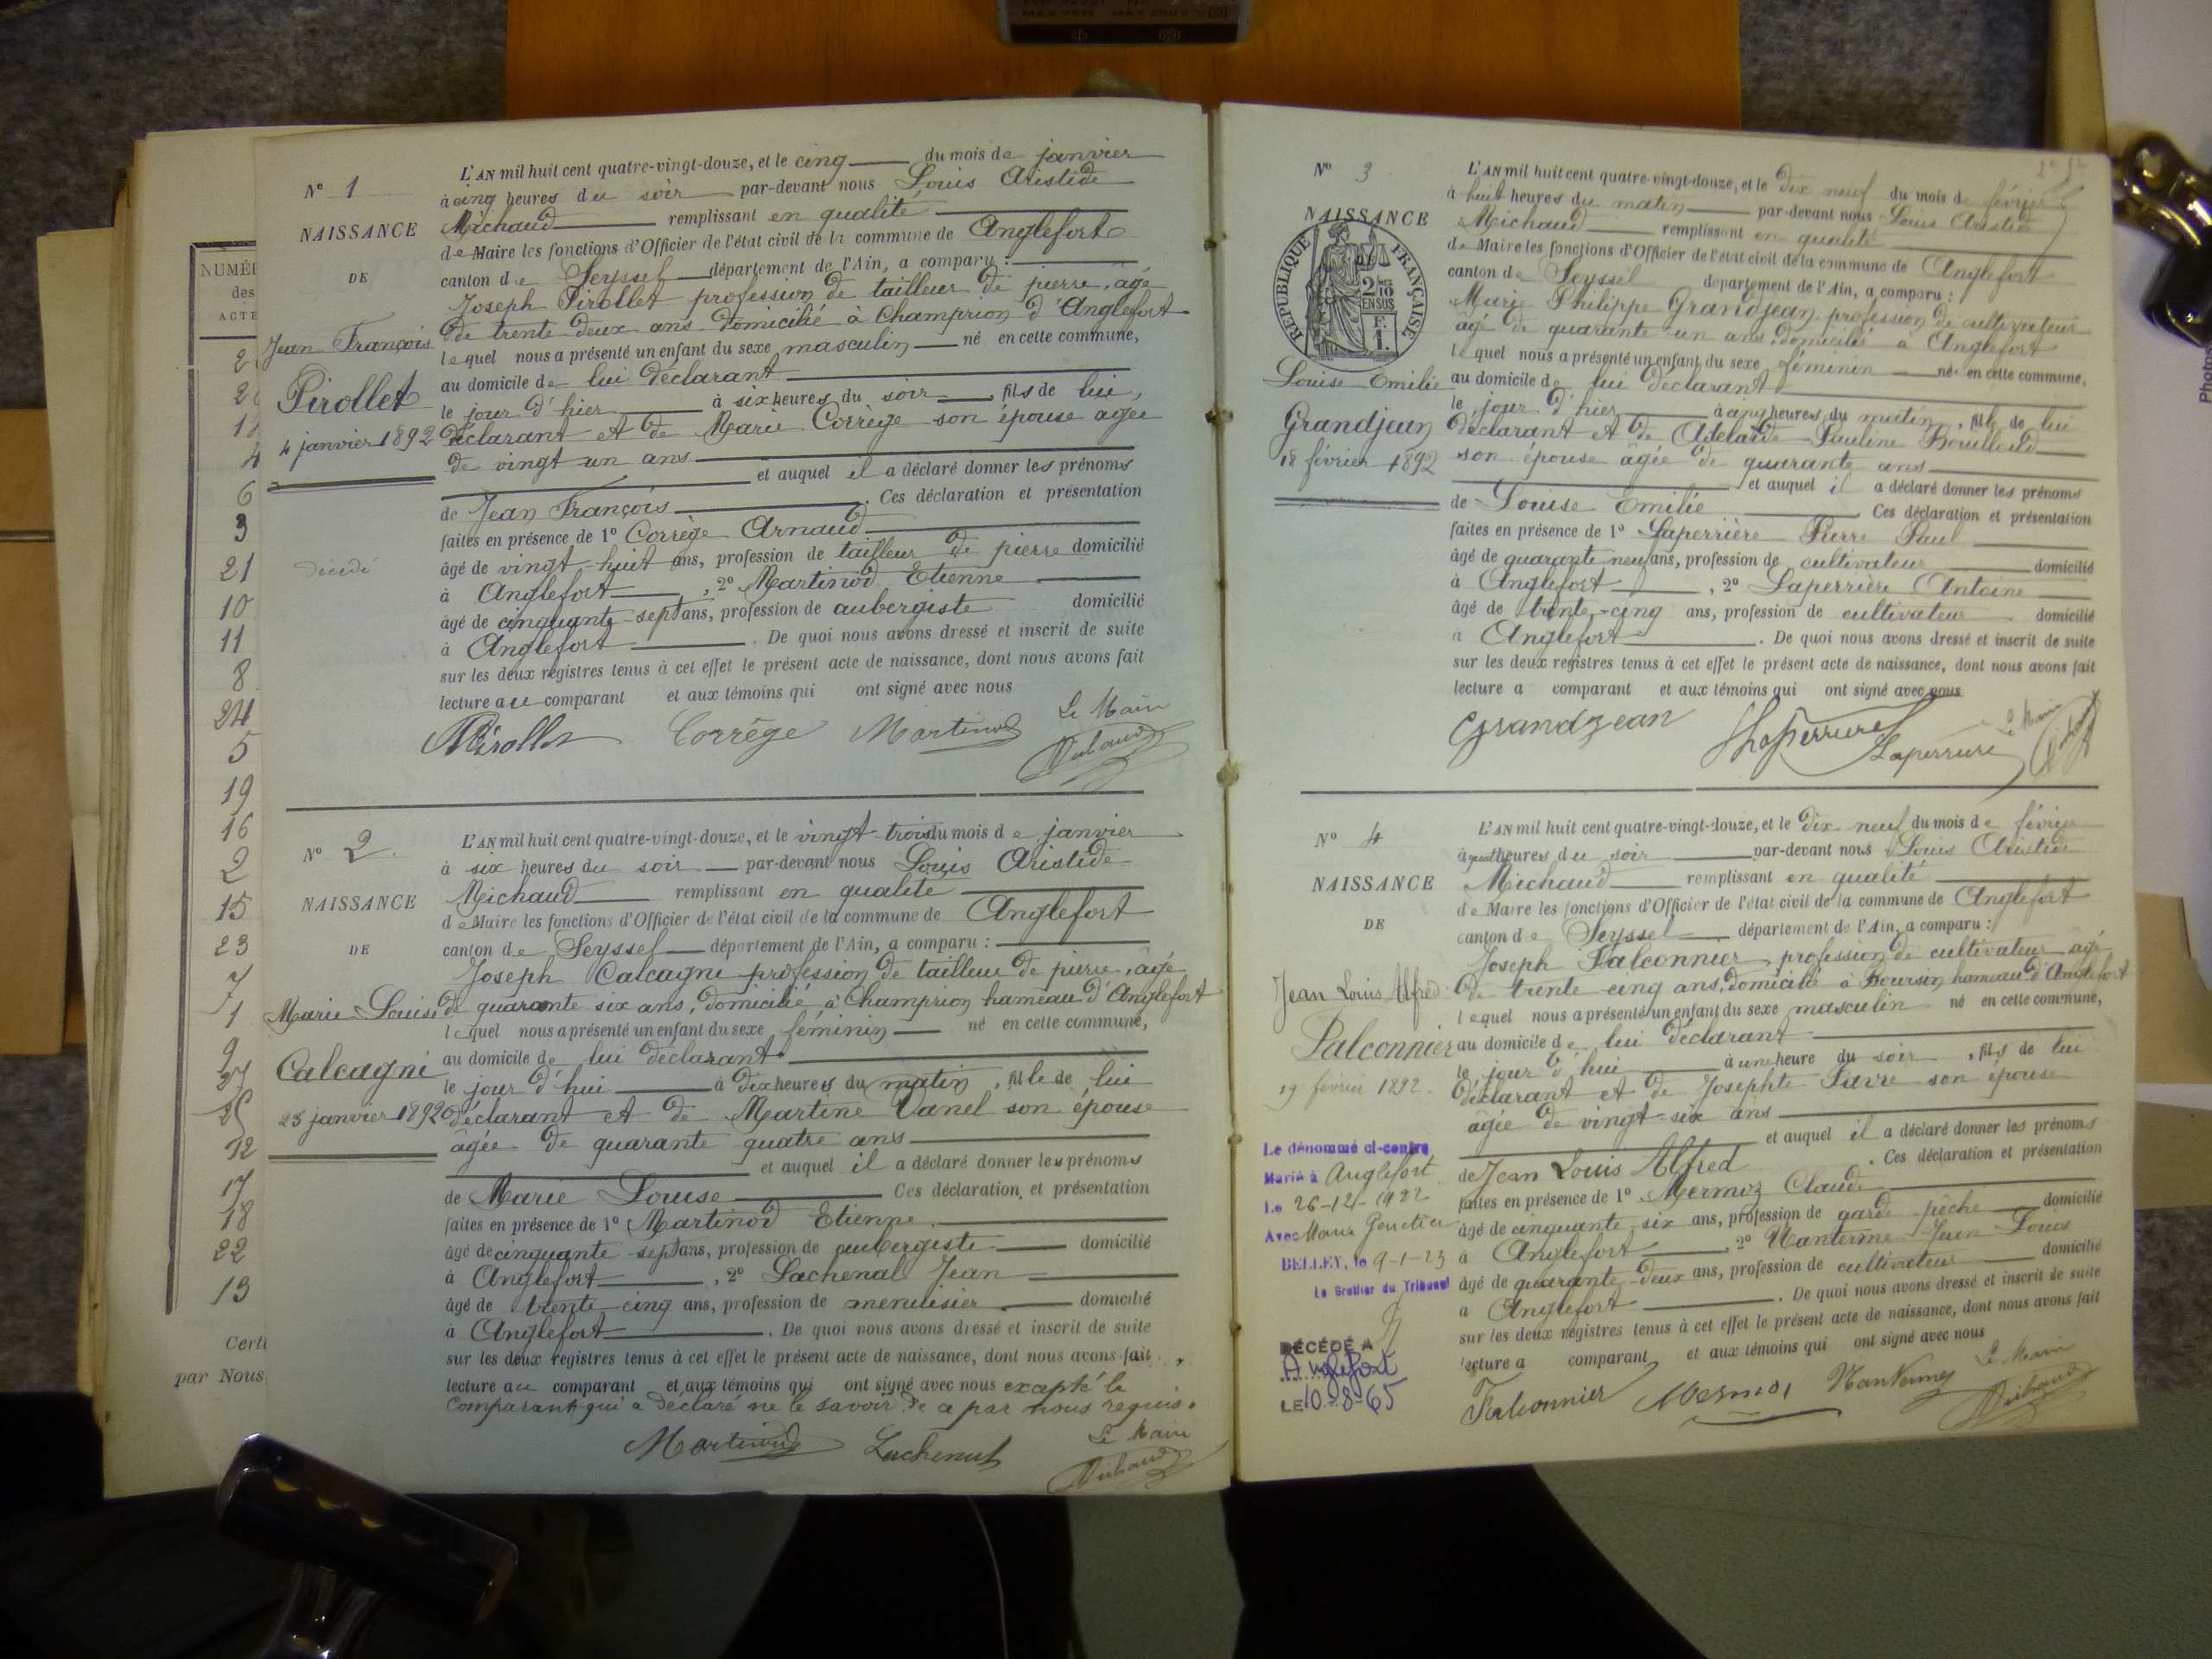 NUMÉ
des
ACTE
2
2
1
4
6
3
21
10
11
8
24
5
19
16
2
15
23
7
1
9
12
17
18
22
13
Certi
par Nous
N° 1
NAISSANCE
DE
Jean François
Pirollet
4 janvier 1892
décédé
L'AN mil huit cent quatre-vingt-douze, et le cinq du mois de janvier
à cinq heures du soir par-devant nous Louis Aristide
Michaud remplissant en qualité
de Maire les fonctions d'Officier de l'état civil de la commune de Anglefort
canton de Seyssel département de l'Ain, a comparu :
Joseph Pirollet profession de tailleur de pierre, âgé
de trente deux ans domicilié à Champrion d'Anglefort
lequel nous a présenté un enfant du sexe masculin né en cette commune,
au domicile de lui déclarant
le jour d'hier à six heures du soir, fils de lui,
déclarant et de Marie Corrège son épouse agée
de vingt un ans
et auquel il a déclaré donner les prénoms
de Jean François. Ces déclaration et présentation
faites en présence de 1° Corrège Arnaud
âgé de vingt-huit ans, profession de tailleur de pierre domicilié
à Anglefort, 2° Martinod Etienne
âgé de cinquante-sept ans, profession de aubergiste domicilié
à Anglefort. De quoi nous avons dressé et inscrit de suite
sur les deux registres tenus à cet effet le présent acte de naissance, dont nous avons fait
lecture au comparant et aux témoins qui ont signé avec nous
Pirollet Corrège Martinod Le Maire
Michaud
N° 2
NAISSANCE
DE
Marie Louise
Calcagni
23 janvier 1892
L'AN mil huit cent quatre-vingt-douze, et le vingt-trois du mois de janvier
à six heures du soir par-devant nous Louis Aristide
Michaud remplissant en qualité
de Maire les fonctions d'Officier de l'état civil de la commune de Anglefort
canton de Seyssel département de l'Ain, a comparu :
Joseph Calcagni profession de tailleur de pierre, âgé
de quarante six ans, domicilié à Champrion hameau d'Anglefort
lequel nous a présenté un enfant du sexe féminin né en cette commune,
au domicile de lui déclarant
le jour d'hui à dix heures du matin, fille de lui
déclarant et de Martine Vanel son épouse
âgée de quarante quatre ans
et auquel il a déclaré donner les prénoms
de Marie Louise Ces déclaration et présentation
faites en présence de 1° Martinod Etienne
âgé de cinquante-sept ans, profession de aubergiste domicilié
à Anglefort, 2° Lachenal Jean
âgé de trente cinq ans, profession de menuisier domicilié
à Anglefort. De quoi nous avons dressé et inscrit de suite
sur les deux registres tenus à cet effet le présent acte de naissance, dont nous avons fait
lecture au comparant et aux témoins qui ont signé avec nous excepté le
comparant qui a déclaré ne le savoir de ce par nous requis.
Martinod Lachenal Le Maire
Michaud
N° 3
NAISSANCE
RÉPUBLIQUE FRANÇAISE
2/10
EN SUS
F.
1.
Louise Emilie
Grandjean
18 février 1892
L'AN mil huit cent quatre-vingt-douze, et le dix neuf du mois de février
à huit heures du matin par-devant nous Louis Aristide
Michaud remplissant en qualité
de Maire les fonctions d'Officier de l'état civil de la commune de Anglefort
canton de Seyssel département de l'Ain, a comparu :
Marie Philippe Grandjean profession de cultivateur
agé de quarante un ans, domicilié à Anglefort
lequel nous a présenté un enfant du sexe féminin né en cette commune,
au domicile de lui déclarant
le jour d'hier à cinq heures du matin, fille de lui
déclarant et de Adélaïde Pauline
son épouse âgée de quarante ans
et auquel il a déclaré donner les prénoms
de Louise Emilie Ces déclaration et présentation
faites en présence de 1° Laperrière Pierre Paul
âgé de quarante neuf ans, profession de cultivateur domicilié
à Anglefort, 2° Laperrière Antoine
âgé de trente-cinq ans, profession de cultivateur domicilié
à Anglefort. De quoi nous avons dressé et inscrit de suite
sur les deux registres tenus à cet effet le présent acte de naissance, dont nous avons fait
lecture a comparant et aux témoins qui ont signé avec nous
Grandjean Laperrière Laperrière Le Maire
N° 4
NAISSANCE
DE
Jean Louis Alfred
Falconnier
19 février 1892.
Le dénommé ci-contre
Marié à Anglefort
Le 26-12-1922
Avec Maria
BELLEY, le 9-1-23
Le Greffier du Tribunal
DÉCÉDÉ A
Anglefort
LE 10-8-65
L'AN mil huit cent quatre-vingt-douze, et le dix neuf du mois de février
à quatre heures du soir par-devant nous Louis Aristide
Michaud remplissant en qualité
de Maire les fonctions d'Officier de l'état civil de la commune de Anglefort
canton de Seyssel département de l'Ain, a comparu :
Joseph Falconnier, profession de cultivateur âgé
de trente cinq ans, domicilié à Boursin hameau d'Anglefort
lequel nous a présenté un enfant du sexe masculin né en cette commune,
au domicile de lui déclarant
le jour d'hui à une heure du soir, fils de lui
déclarant et de Josephte Favre son épouse
âgée de vingt-six ans
et auquel il a déclaré donner les prénoms
de Jean Louis Alfred. Ces déclaration et présentation
faites en présence de 1° Mermoz Claude
âgé de cinquante six ans, profession de garde-pêche domicilié
à Anglefort, 2° Nanterme Jean Louis
âgé de quarante-deux ans, profession de cultivateur domicilié
a Anglefort. De quoi nous avons dressé et inscrit de suite
sur les deux registres tenus à cet effet le présent acte de naissance, dont nous avons fait
lecture a comparant et aux témoins qui ont signé avec nous
Falconnier Mermoz Nanterme Le Maire
Michaud